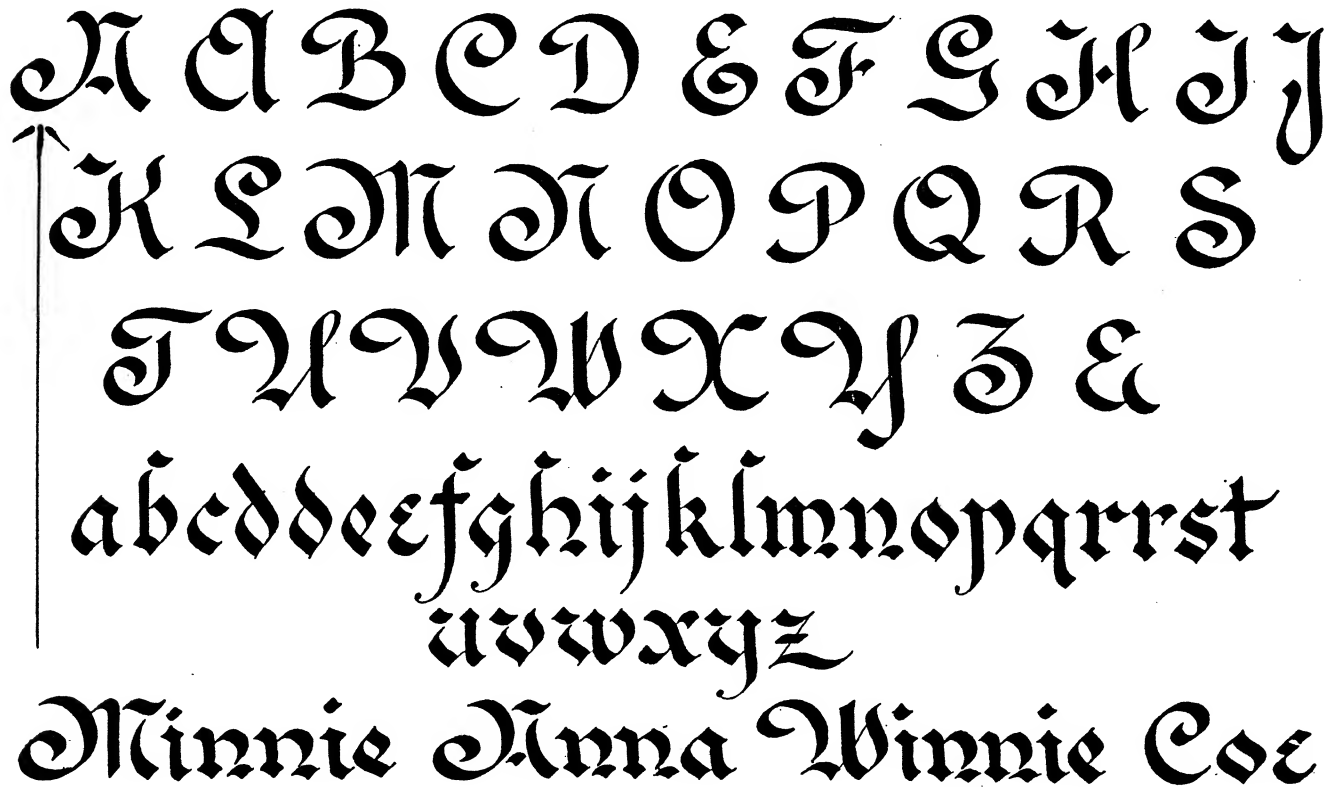 A A B C D E F G H I J
K L M N O P Q R S
T U V W X Y Z &
a b c d d e e f g h i j k l m n o p q r r s t
u v w x y z
Minnie Anna Winnie Coe